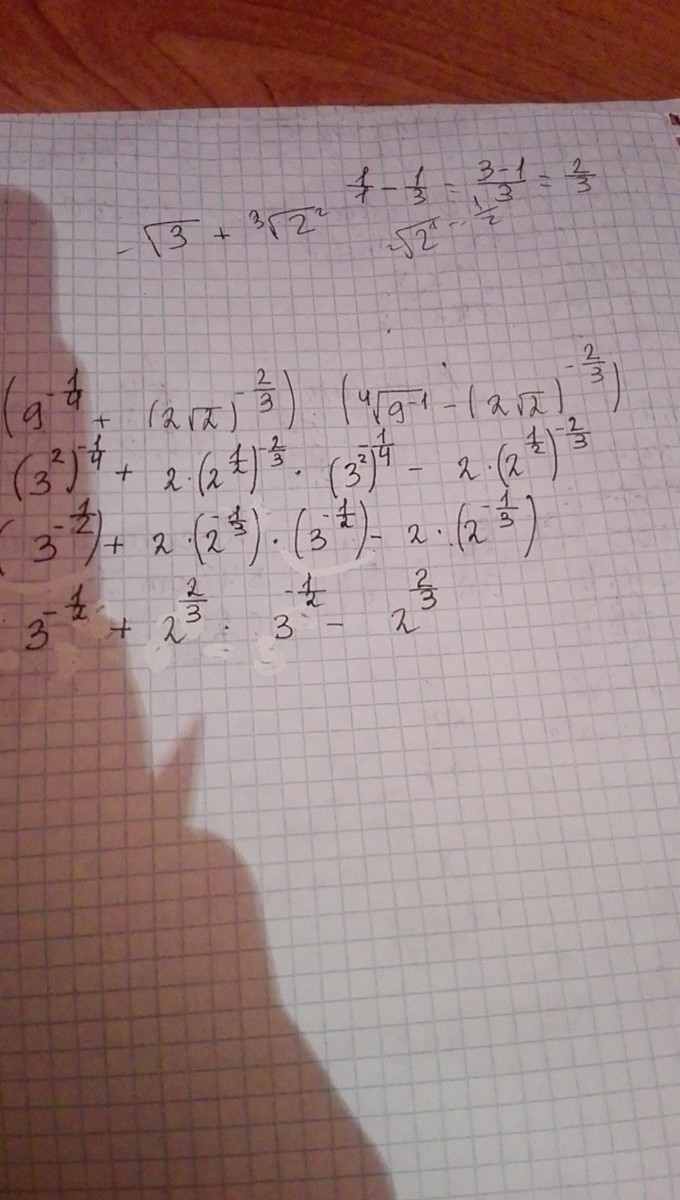 1/1 - 1/3 = 3-1/3 = 2/3
-√3 + ³√2² ²√2¹ - 1/2
(9^(-1/4) + (2√2)^(-2/3)) · (⁴√9⁻¹ - (2√2)^(-2/3))
(3²)^(-1/4) + 2·(2^(1/2))^(-2/3) · (3²)^(-1/4) - 2·(2^(1/2))^(-2/3)
(3^(-1/2)) + 2·(2^(-1/3)) · (3^(-1/2)) - 2·(2^(-1/3))
3^(-1/2) + 2^(2/3) · 3^(-1/2) - 2^(2/3)